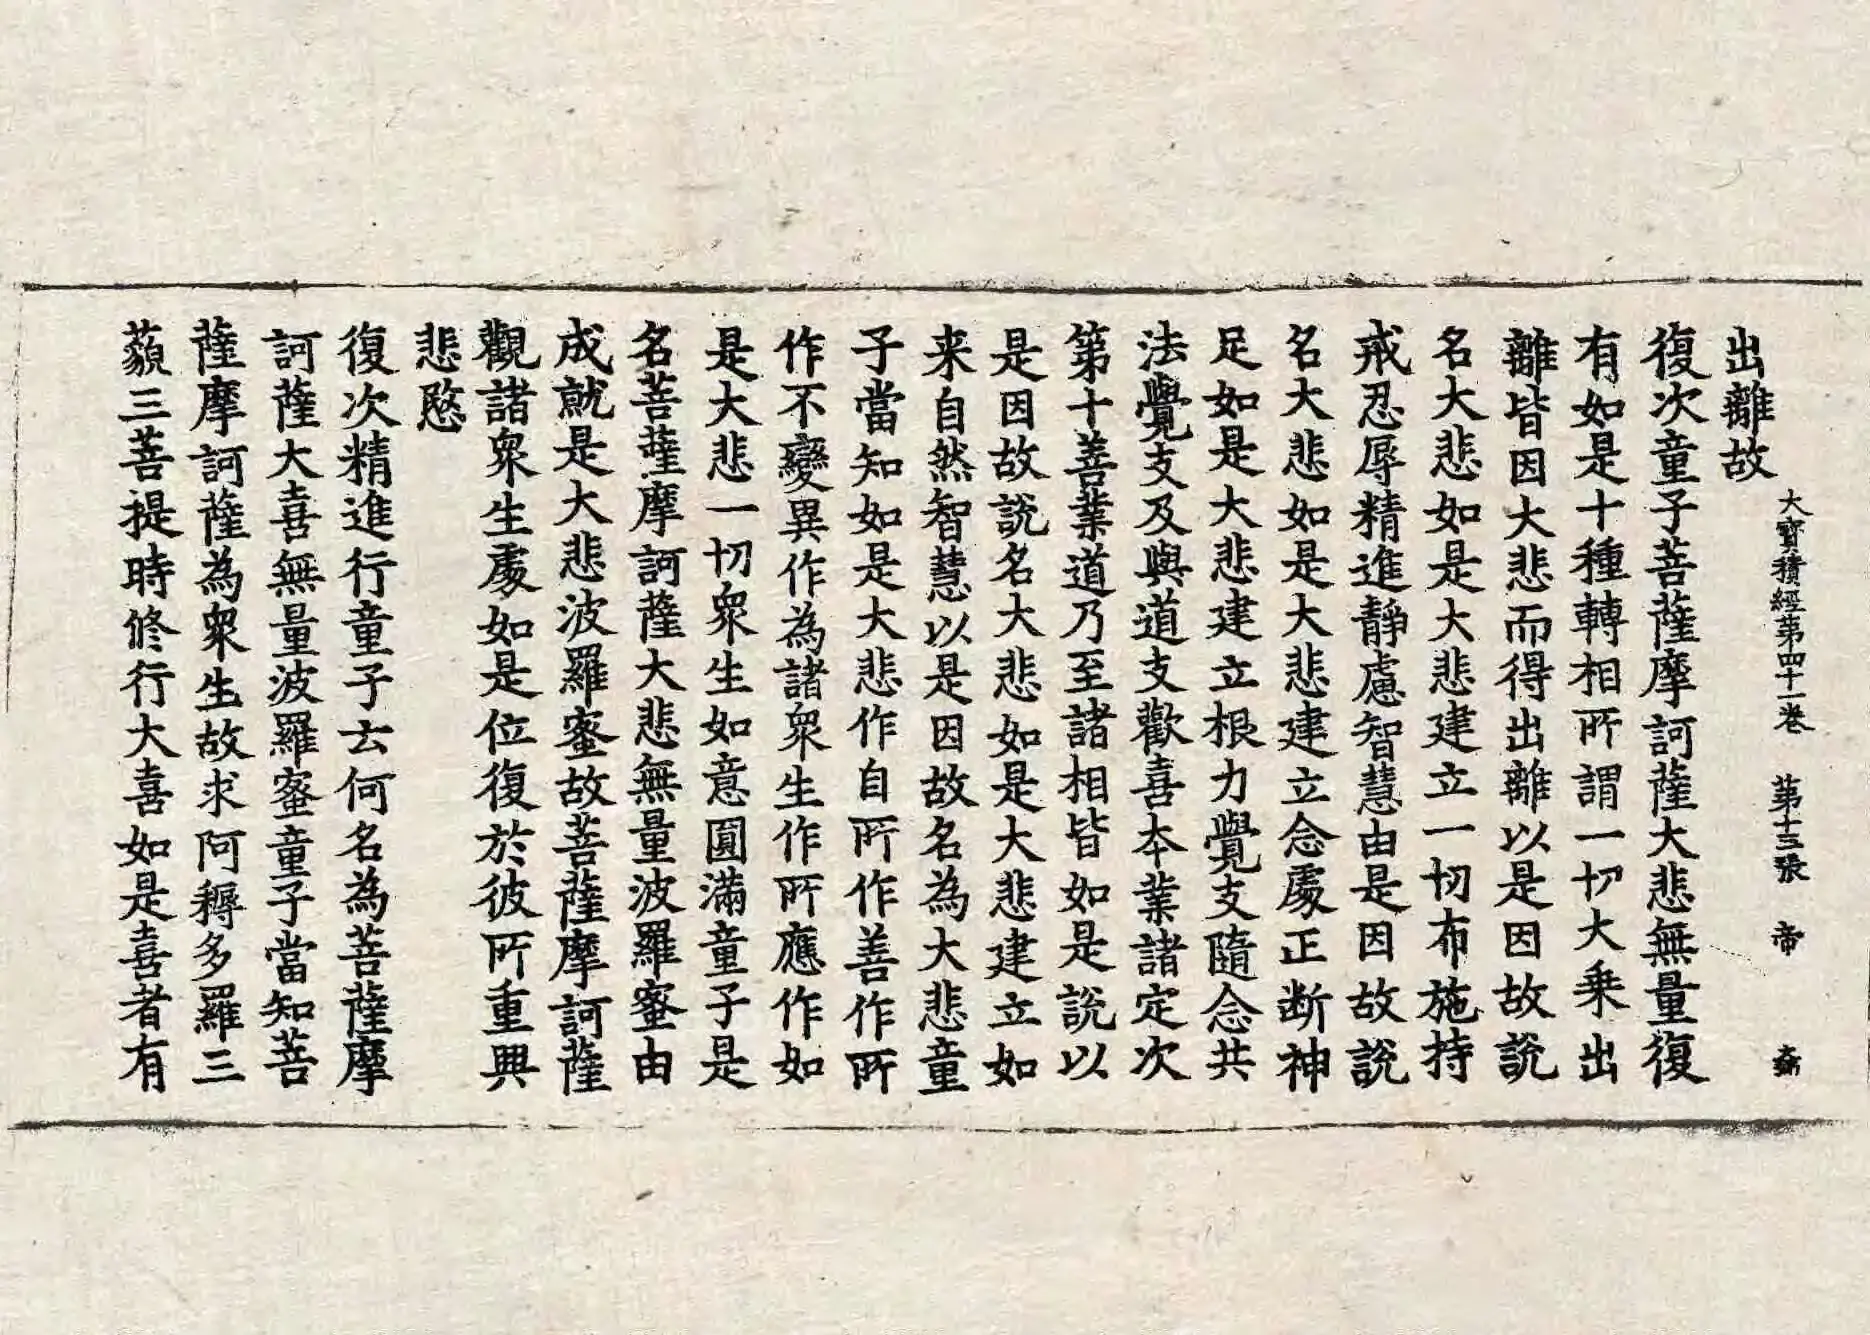 大寳積經第四十一卷　第十三張　帝
出離故
復次童子菩薩摩訶薩大悲無量復
有如是十種轉相所謂一切大乗出
離皆因大悲而得出離以是因故說
名大悲如是大悲建立一切布施持
戒忍辱精進靜慮智慧由是因故說
名大悲如是大悲建立念處正断神
足如是大悲建立根力覺支隨念共
法覺支及與道支歡喜本業諸定次
第十善業道乃至諸相皆如是說以
是因故說名大悲如是大悲建立如
来自然智慧以是因故名為大悲童
子當知如是大悲作自所作善作所
作不變異作為諸衆生作所應作如
是大悲一切衆生如意圓滿童子是
名菩薩摩訶薩大悲無量波羅蜜由
成就是大悲波羅蜜故菩薩摩訶薩
觀諸衆生處如是位復於彼所重興
悲愍
復次精進行童子云何名為菩薩摩
訶薩大喜無量波羅蜜童子當知菩
薩摩訶薩為衆生故求阿耨多羅三
藐三菩提時修行大喜如是喜者有